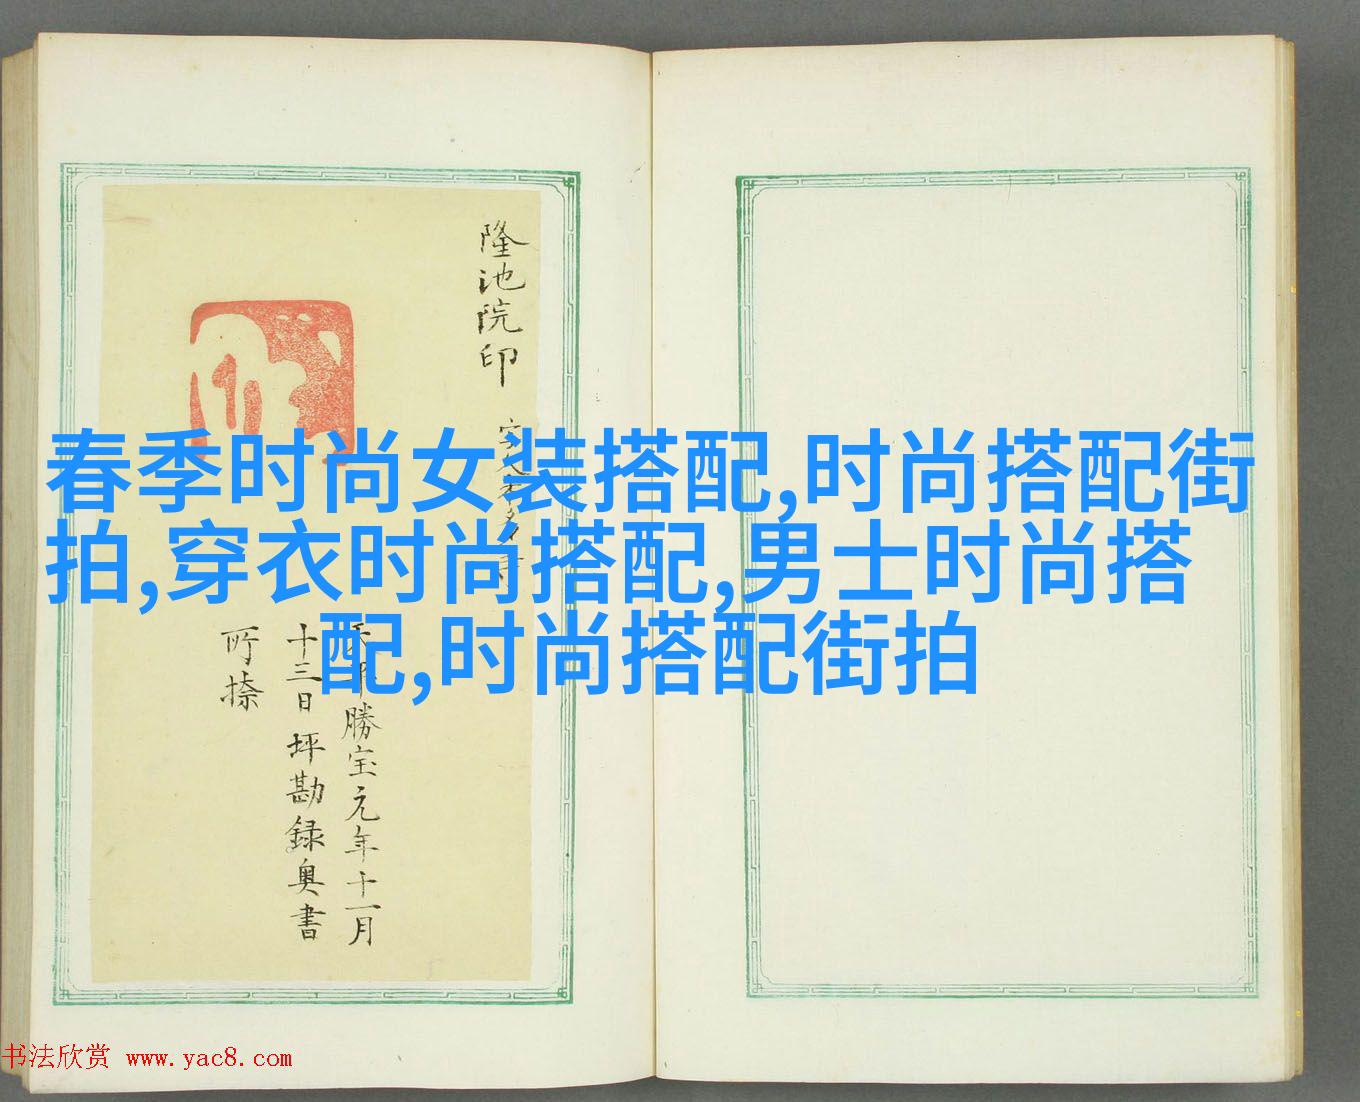 春季时尚女装搭配,时尚搭配街
拍,穿衣时尚搭配,男士时尚搭
配,时尚搭配街拍
隆池院印
勝宝元年十一月
十三日 坪勘録奥書
所捺
书法欣赏 www.yac8.com